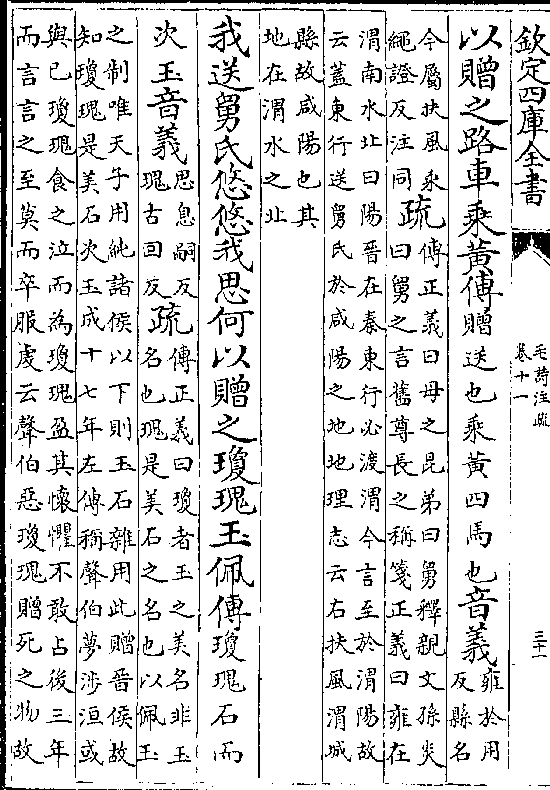 欽定四庫全書
毛詩注疏
卷十一
三十一
以贈之路車乘黃傳贈送也乘黃四馬也音義雍於用
反縣名
今屬扶風乘
繩證反注同疏傳正義曰母之昆弟曰舅釋親文孫炎
曰舅之言舊尊長之稱箋正義曰雍在
渭南水北曰陽晉在秦東行必渡渭今言至於渭陽故
云蓋東行送舅氏於咸陽之地地理志云右扶風渭城
縣故咸陽也其
地在渭水之北
我送舅氏悠悠我思何以贈之瓊瑰玉佩傳瓊瑰石而
次玉音義思息嗣反
瑰古回反疏傳正義曰瓊者玉之美名非玉
名也瑰是美石之名也以佩玉
之制唯天子用純諸侯以下則玉石雜用此贈晉侯故
知瓊瑰是美石次玉成十七年左傳稱聲伯夢涉洹或
與已瓊瑰食之泣而為瓊瑰盈其懷懼不敢占後三年
而言言之至莫而卒服虔云聲伯惡瓊瑰贈死之物故